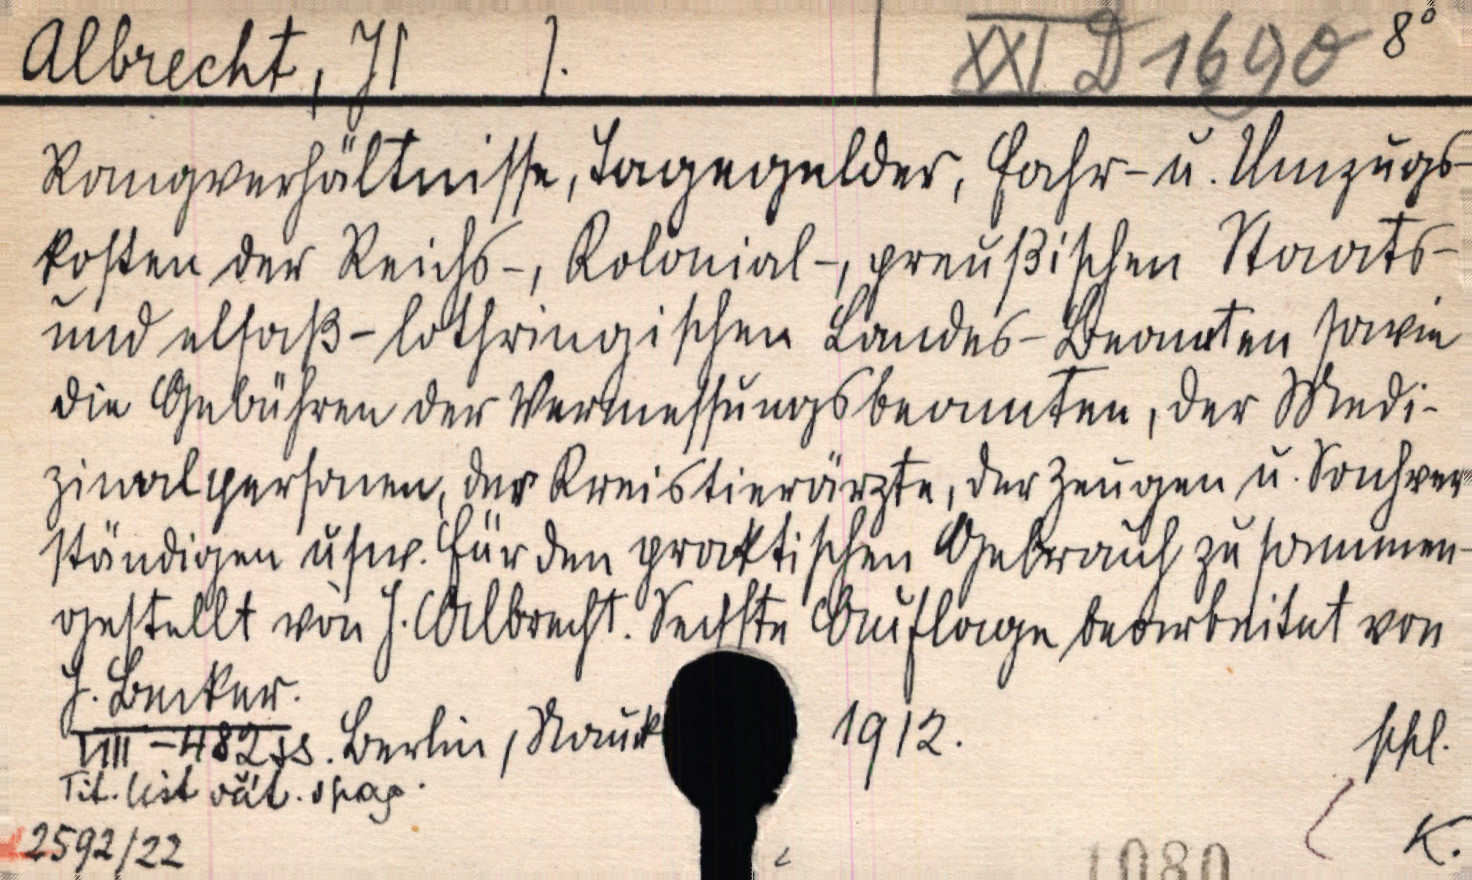 Albrecht, J[ ].
XXI D 1690 8°
Rangverhältnisse, Tagegelder, Fahr- u. Umzugs-
kosten der Reichs-, Kolonial-, preußischen Staats-
und elsaß-lothringischen Landes-Beamten sowie
die Gebühren der Vermessungsbeamten, der Medi-
zinalpersonen, der Kreistierärzte, der Zeugen u. Sachver-
ständigen usw. Für den praktischen Gebrauch zusammen-
gestellt von J. Albrecht. Sechste Auflage bearbeitet von
J. Becker.
VIII - 482 ss. Berlin, Nauck 1912.
Tit. list
2592/22
K.
1080